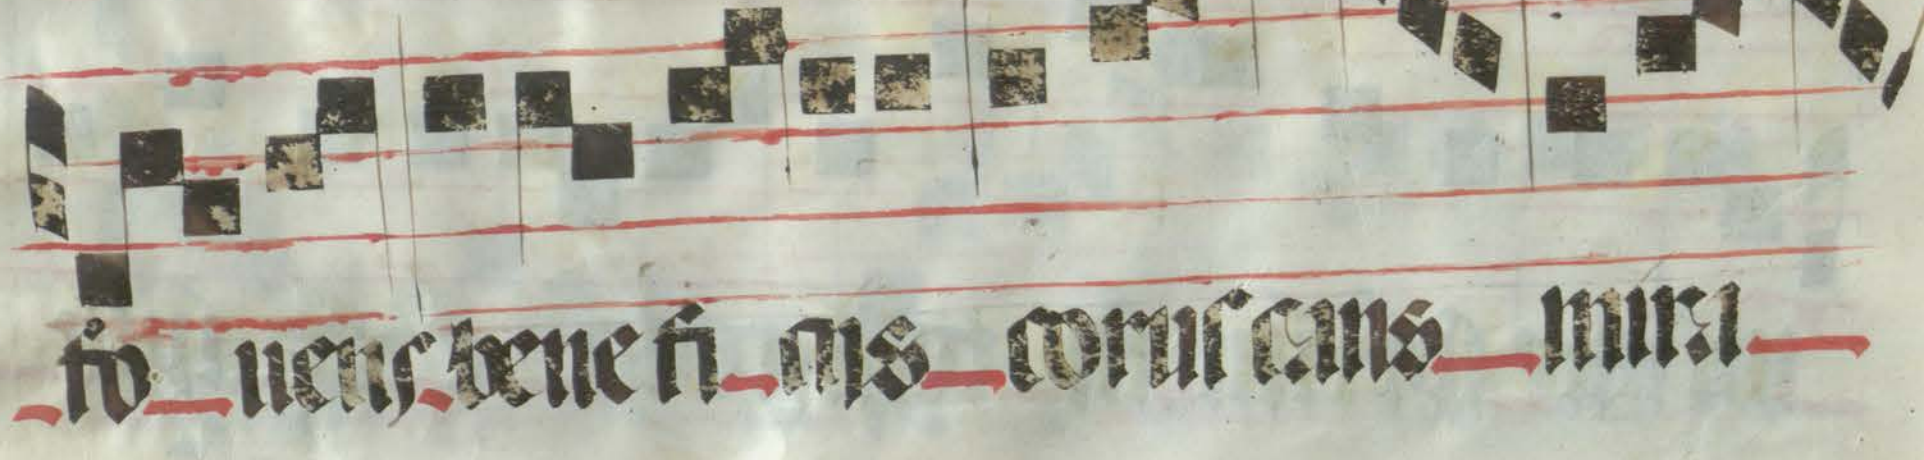 fo uens bene fi cijs corus cans mira